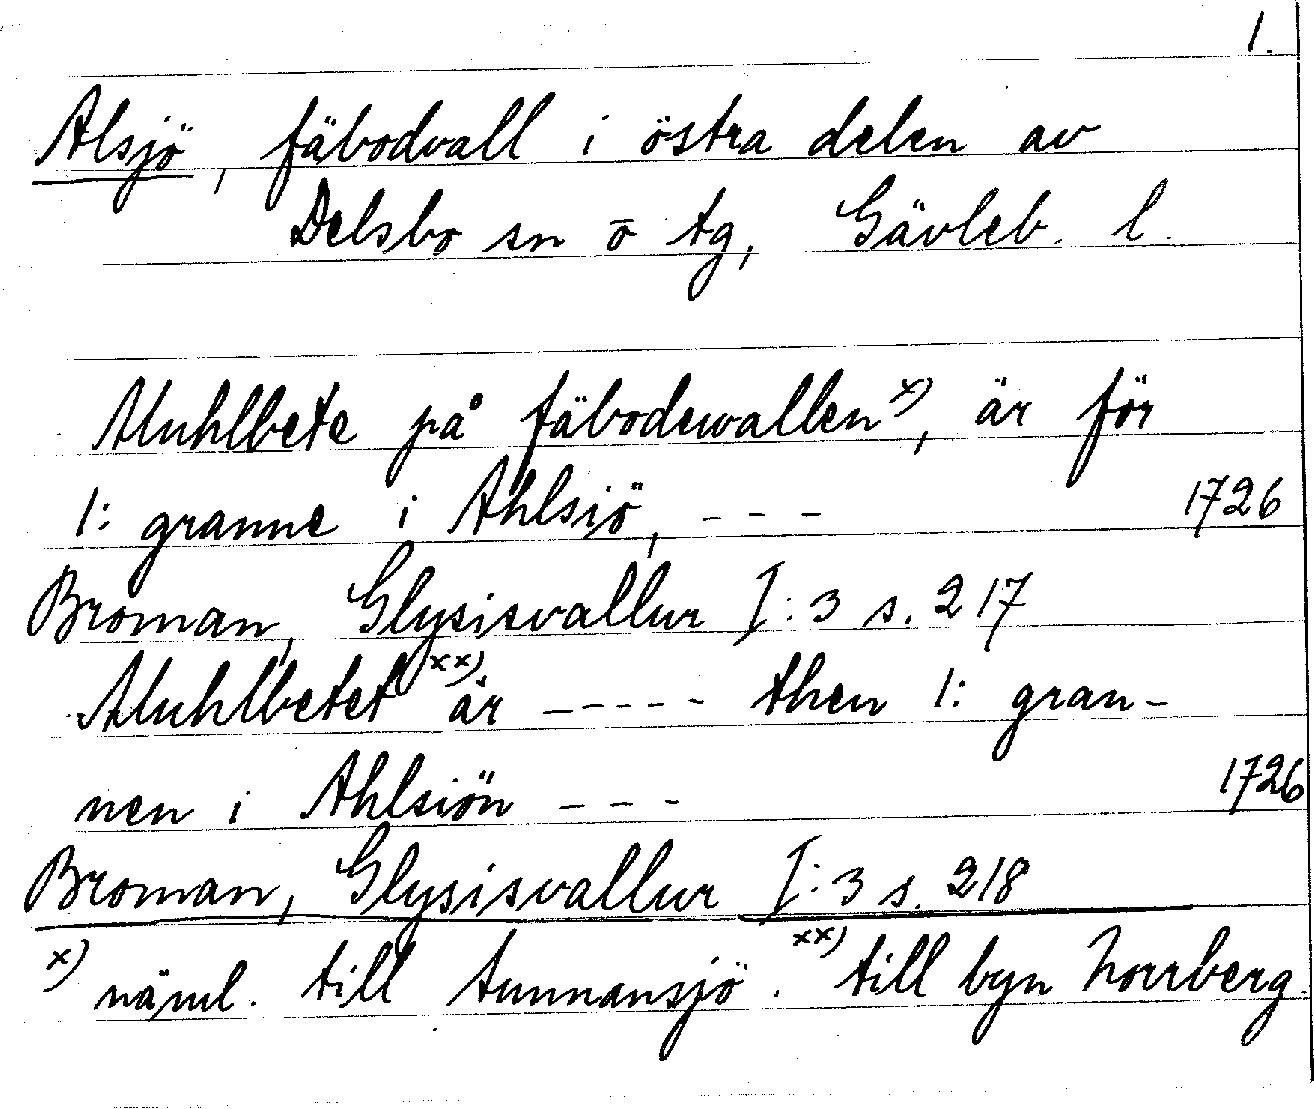 1.
Alsjö, fäbodvall i östra delen av
Delsbo sn o tg, Gävleb. l.
Muhlbete på fäbodewallen x), är för
1: granne i Ahlsiö, - - -
1726
Broman, Glysisvallur I:3 s. 217
Muhlbetet xx) är - - - - - then 1: gran-
nen i Ahlsiön - - -
1726
Broman, Glysisvallur I:3 s. 218
x) näml. till Annansjö. xx) till byn Norrberg.